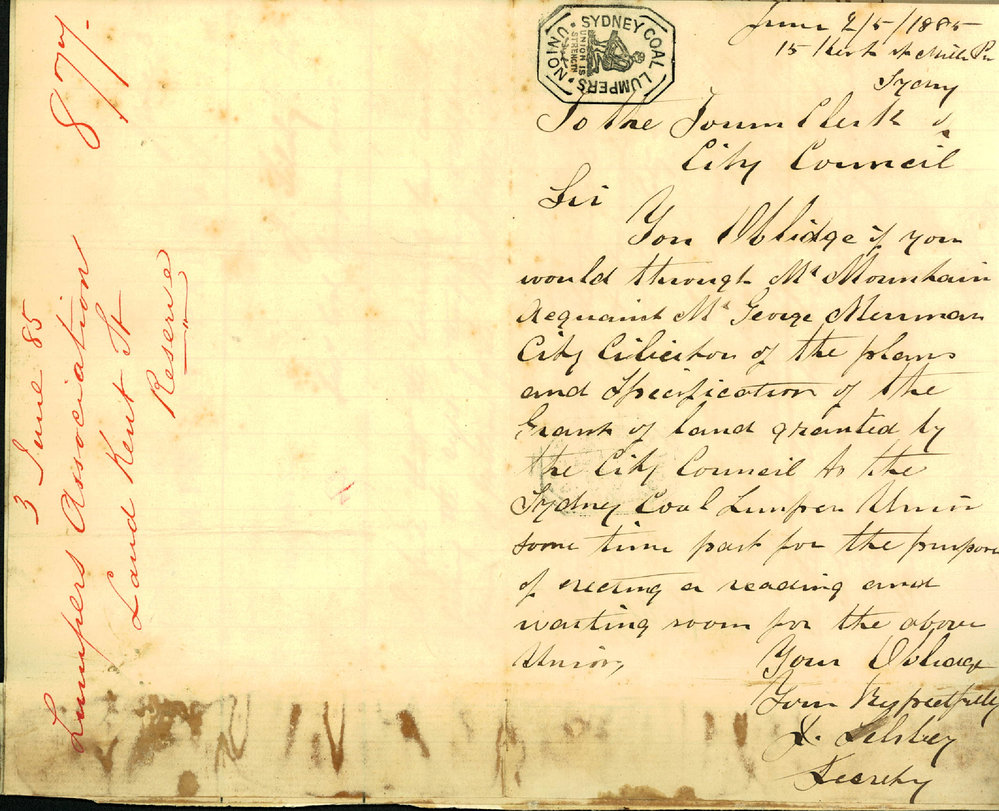 879.
3 June 85
Lumpers Association
Land Kent St
Reserve
SYDNEY COAL LUMPERS UNION
UNION IS STRENGTH
June 2/5/1885
15 Kent st Millr Pn
Sydny
To the Town Clerk
City Council
Sir
You Oblidge if you
would through Mr Mountain
Acquaint Mr George Merriman
City of the plans
and Specification of the
Grant of land granted by
the City Council to the
Sydney Coal Lumper Union
some time past for the purpose
of erecting a reading and
waiting room for the above
Union,
Your Oblidge
Your Respectfully
Secrety